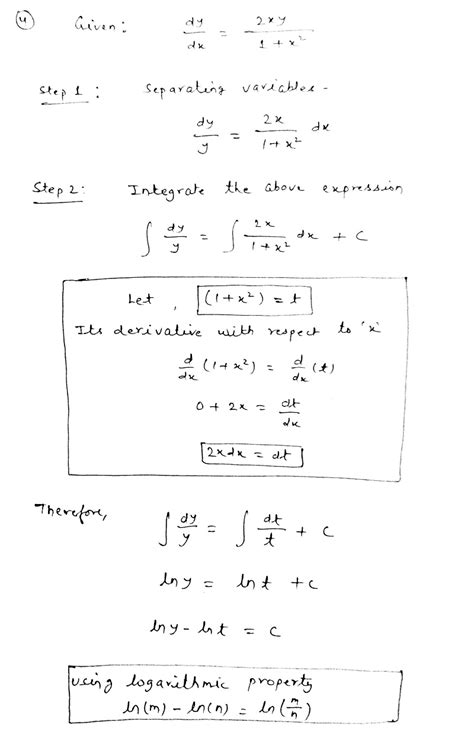 (4) Given: dy/dx = 2xy/1+x²
Step 1: Separating variables -
dy/y = 2x/1+x² dx
Step 2: Integrate the above expression
∫ dy/y = ∫ 2x/1+x² dx + C
Let, (1+x²) = t
Its derivative with respect to 'x'
d/dx (1+x²) = d/dx (t)
0 + 2x = dt/dx
2xdx = dt
Therefore, ∫ dy/y = ∫ dt/t + C
ln y = ln t + C
ln y - ln t = C
using logarithmic property
ln(m) - ln(n) = ln(m/n)